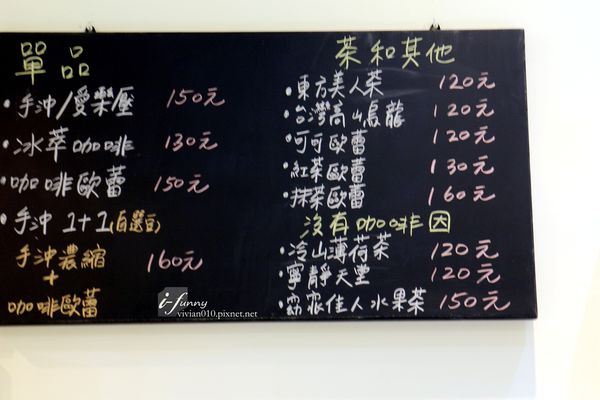 單品
・手沖/愛樂壓 150元
・冰萃咖啡 130元
・咖啡歐蕾 150元
・手沖 1+1(自選豆)
手沖濃縮
+
咖啡歐蕾
160元
茶和其他
・東方美人茶 120元
・台灣高山烏龍 120元
・可可歐蕾 120元
・紅茶歐蕾 130元
・抹茶歐蕾 160元
沒有咖啡因
・冷山薄荷茶 120元
・寧靜天堂 120元
・窈窕佳人水果茶 150元
i-funny
vivian010.pixnet.net